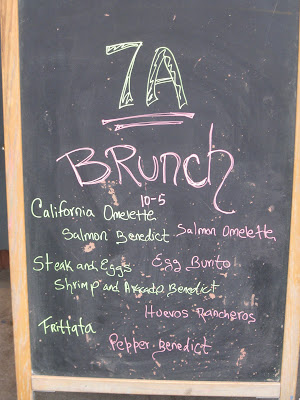 7A
BRunch
10-5
California Omelette
Salmon Benedict Salmon Omelette
Steak and Eggs Egg Burito
Shrimp and Avocado Benedict
Huevos Rancheros
Frittata
Pepper Benedict